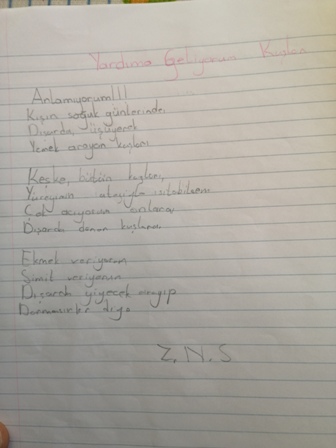 Yardıma Geliyorum Kuşlar
Anlamıyorum!!!
Kışın soğuk günlerinde
Dışarda, üşüyerek
Yemek arayan kuşları
Keşke, bütün kuşları,
Yüreğimin ateşiyle ısıtabilsem
Çok acıyorum onlara,
Dışarda donan kuşlara
Ekmek veriyorum
Simit veriyorum
Dışarda yiyecek arayıp
Donmasınlar diye
Z.N.S